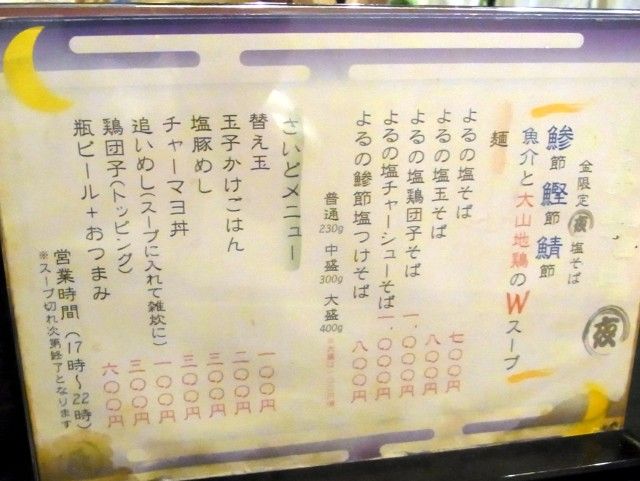 金限定 夜 塩そば
夜
鯵節 鰹節 鯖節
魚介と大山地鶏のWスープ
麺
よるの塩そば 七〇〇円
よるの塩玉そば 八〇〇円
よるの塩鶏団子そば 一、〇〇〇円
よるの塩チャーシューそば 一、〇〇〇円
よるの鯵節塩つけそば 八〇〇円
普通 230g 中盛 300g 大盛 400g
さいどメニュー
替え玉 一〇〇円
玉子かけごはん 二〇〇円
塩豚めし 三〇〇円
チャーマヨ丼 三〇〇円
追いめし(スープに入れて雑炊に) 一〇〇円
鶏団子(トッピング) 三〇〇円
瓶ビール+おつまみ 六〇〇円
営業時間(17時〜22時)
※スープ切れ次第終了となります